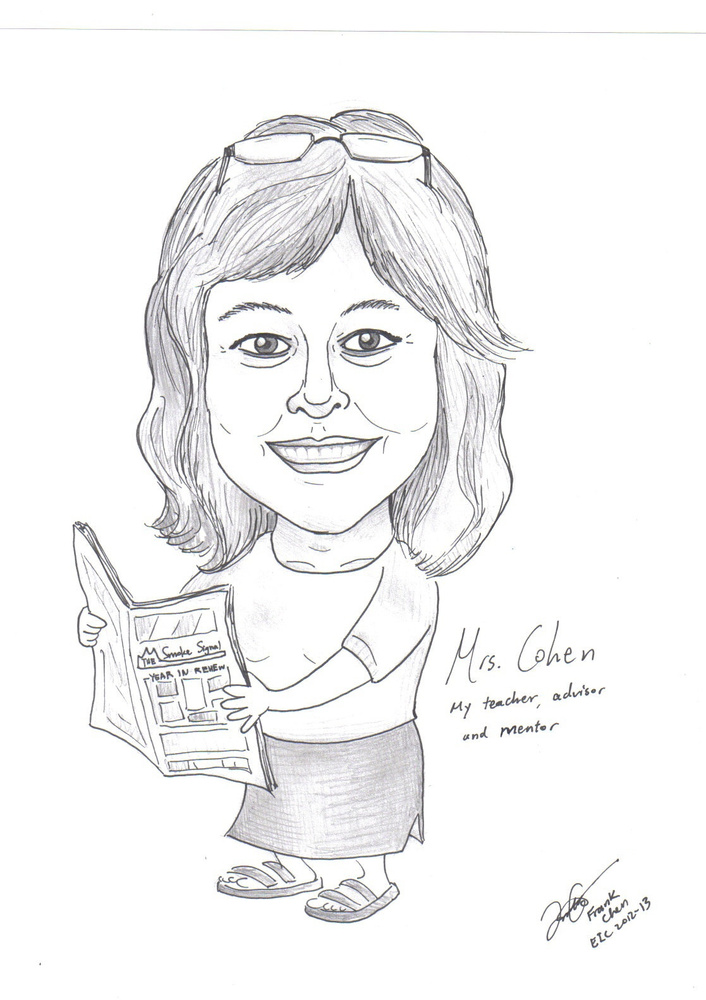 THE Smoke Signal
YEAR IN REVIEW
Mrs. Cohen
My teacher, advisor
and mentor
Frank
Chen
EIC 2012-13